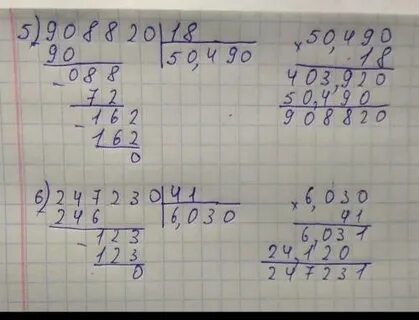 5) 908820 | 18
90 | 50,490
- 088
72
- 162
162
0
× 50,490
18
403,920
50,490
908820
6) 247230 | 41
246 | 6,030
- 123
123
0
× 6,030
41
6,031
24,120
247231